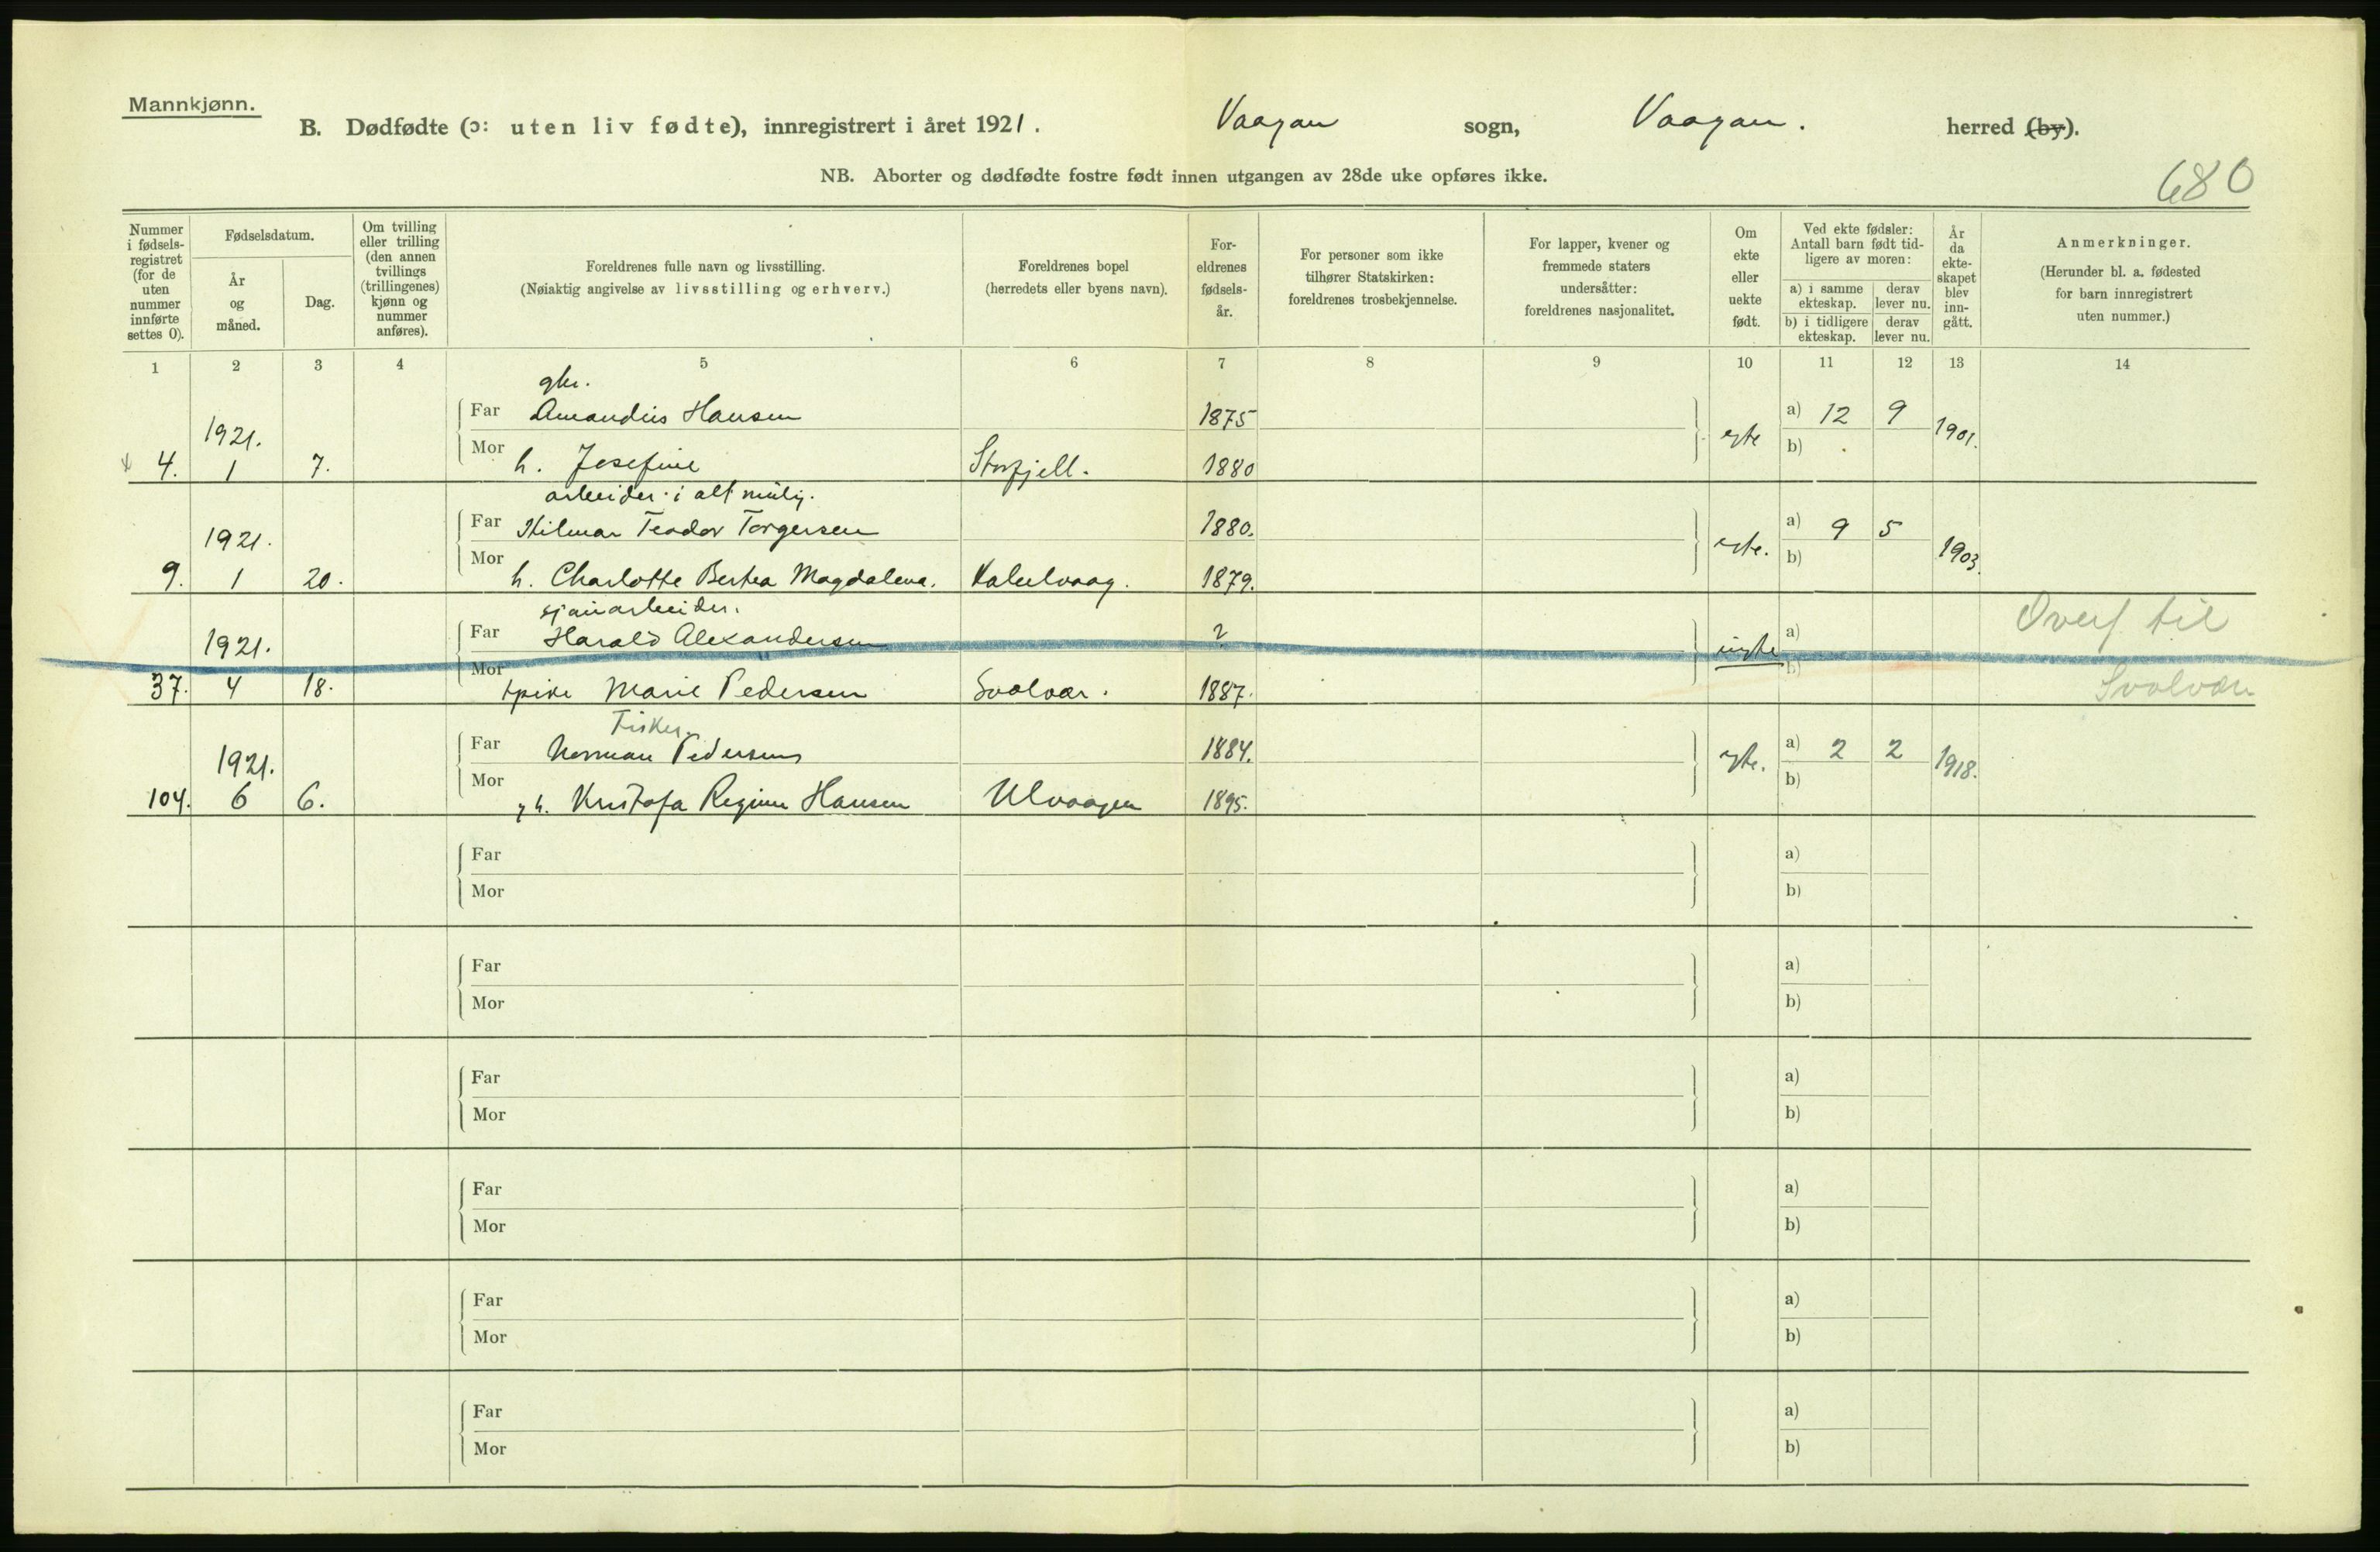 Mannkjønn.
B. Dødfødte (ɔ: uten liv fødte), innregistrert i året 1921. Vaagan sogn, Vaagan. herred (by).
NB. Aborter og dødfødte fostre født innen utgangen av 28de uke opføres ikke.
680
Nummer i fødsels- registret (for de uten nummer innførte settes 0).
Fødselsdatum.
År og måned.
Dag.
Om tvilling eller trilling (den annen tvillings (trillingenes) kjønn og nummer anføres).
Foreldrenes fulle navn og livsstilling.
(Nøiaktig angivelse av livsstilling og erhverv.)
Foreldrenes bopel
(herredets eller byens navn).
For- eldrenes fødsels- år.
For personer som ikke tilhører Statskirken: foreldrenes trosbekjennelse.
For lapper, kvener og fremmede staters undersåtter: foreldrenes nasjonalitet.
Om ekte eller uekte født.
Ved ekte fødsler: Antall barn født tid- ligere av moren:
a) i samme ekteskap.
derav lever nu.
b) i tidligere ekteskap.
derav lever nu.
År da ekte- skapet blev inn- gått.
Anmerkninger.
(Herunder bl. a. fødested for barn innregistrert uten nummer.)
1 2 3 4 5 6 7 8 9 10 11 12 13 14
gbr.
Far Amandus Hansen 1875 a) 12 9
1921. egte 1901.
Mor h. Josefine Storfjell. 1880 b)
4. 1 7.
arbeider i alt mulig.
Far Hilmar Teodor Torgersen 1880. a) 9 5
1921. egte. 1903.
Mor h. Charlotte Bertea Magdalena. Kalelvaag. 1879. b)
9. 1 20.
sjauarbeider. Overf til
Far Harald Alexandersen ? a)
1921. uegte
Mor b)
37. 4 18. pike Marie Pedersen Svolvær. 1887. Svolvær
Fisker
Far Norman Pedersen 1884. a) 2 2
1921. egte. 1918.
Mor b)
104. 6 6. h. Kristofa Regine Hansen Ulvaagen 1895.
Far a)
Mor b)
Far a)
Mor b)
Far a)
Mor b)
Far a)
Mor b)
Far a)
Mor b)
Far a)
Mor b)